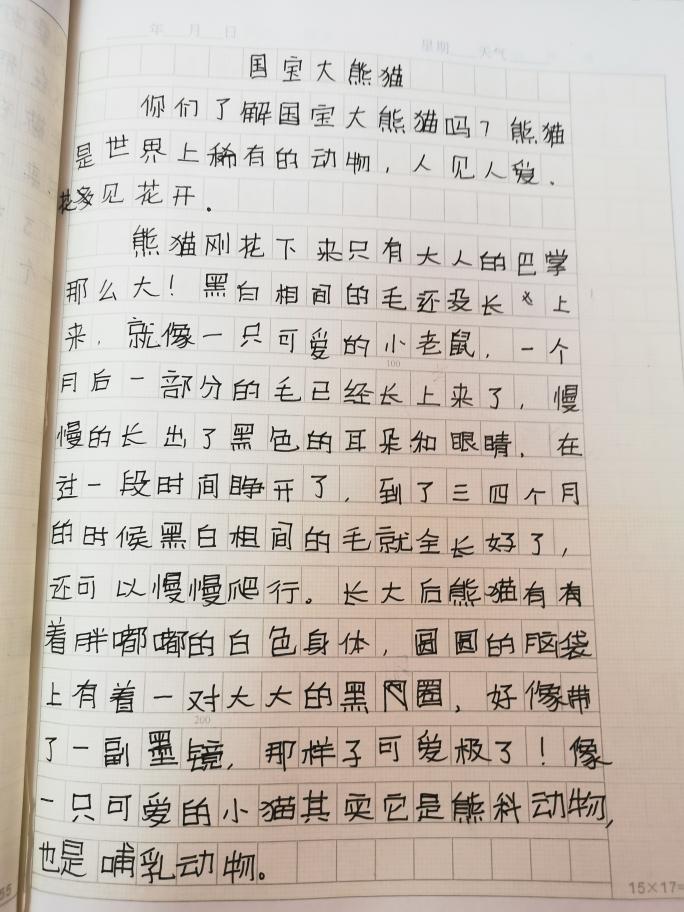 年 月 日
星期 天气
国宝大熊猫
你们了解国宝大熊猫吗?熊猫
是世界上稀有的动物,人见人爱.
花多见花开.
熊猫刚花下来只有大人的巴学
那么大!黑白相间的毛还没长上
来.就像一只可爱的小老鼠.一个
100
月后一部分的毛已经长上来了,慢
慢的长出了黑色的耳朵和眼睛.在
过一段时间睁开了,到了三四个月
的时候黑白相间的毛就全长好了,
还可以慢慢爬行。长大后熊猫有有
着胖嘟嘟的白色身体,圆圆的脑袋
上有着一对大大的黑圈,好像带
200
了一副墨镜,那样子可爱极了!像
一只可爱的小猫其实它是熊科动物,
也是哺乳动物。
15×17=
55